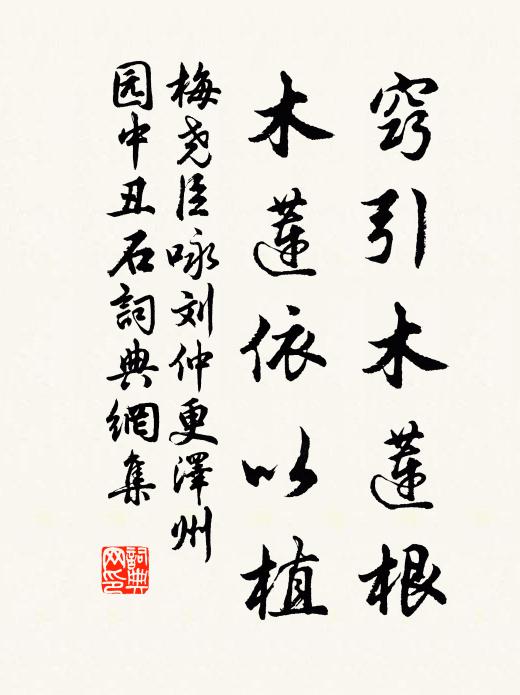 窍引木蓮根
木蓮依以植
梅尧臣咏刘仲更澤州
园中丑石詞典網集
詞典
网印